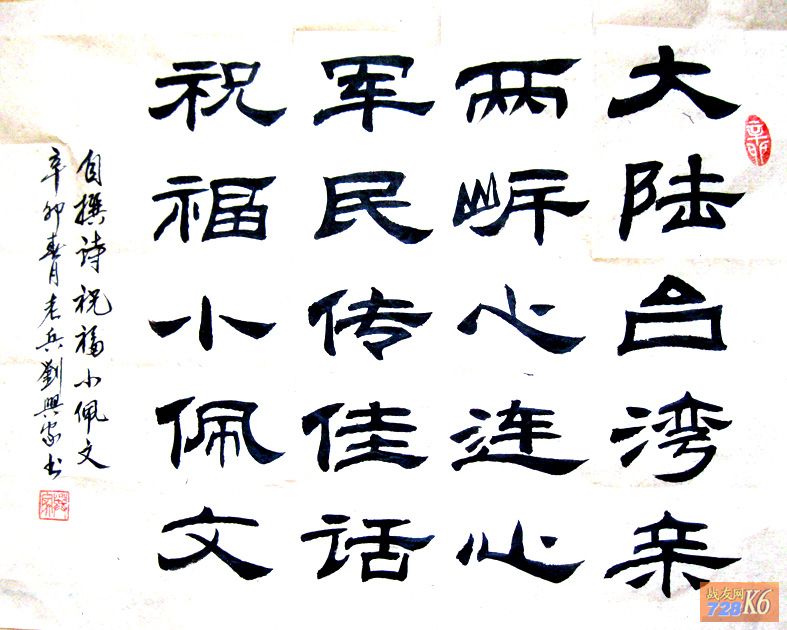 大陆台湾亲
两岸心连心
军民传佳话
祝福小佩文
自撰诗祝福小佩文
辛卯春月老兵劉興家书
辛卯
战友网
728K6